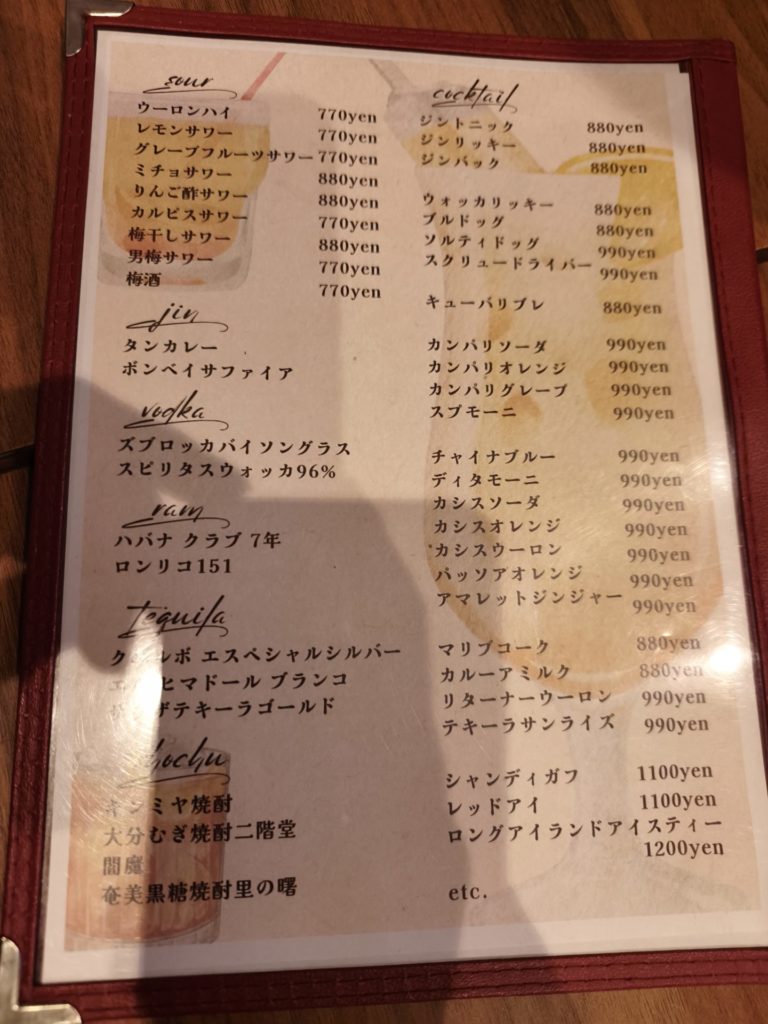 sour
ウーロンハイ 770yen
レモンサワー 770yen
グレープフルーツサワー 770yen
ミチョサワー 880yen
りんご酢サワー 880yen
カルピスサワー 770yen
梅干しサワー 880yen
男梅サワー 770yen
梅酒 770yen
jin
タンカレー
ボンベイサファイア
vodka
ズブロッカバイソングラス
スピリタスウォッカ96%
ram
ハバナ クラブ 7年
ロンリコ151
tequila
エスペシャルシルバー
ブランコ
shochu
キンミヤ焼酎
大分むぎ焼酎二階堂
閻魔
奄美黒糖焼酎里の曙
cocktail
ジントニック 880yen
ジンリッキー 880yen
ジンバック 880yen
ウォッカリッキー 880yen
ブルドッグ 880yen
ソルティドッグ 990yen
スクリュードライバー 990yen
キューバリブレ 880yen
カンパリソーダ 990yen
カンパリオレンジ 990yen
カンパリグレープ 990yen
スプモーニ 990yen
チャイナブルー 990yen
ディタモーニ 990yen
カシスソーダ 990yen
カシスオレンジ 990yen
カシスウーロン 990yen
パッソアオレンジ 990yen
アマレットジンジャー 990yen
マリブコーク 880yen
カルーアミルク 880yen
リターナーウーロン 990yen
テキーラサンライズ 990yen
シャンディガフ 1100yen
レッドアイ 1100yen
ロングアイランドアイスティー
1200yen
etc.